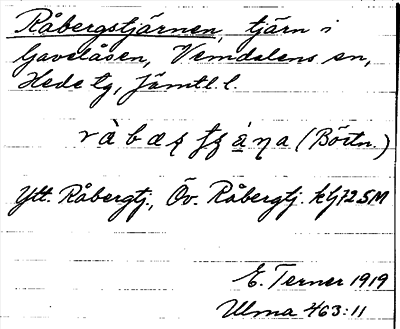 Råbergstjärnen, tjärn i
Gavelåsen, Vemdalens sn,
Hede tg, Jämtl. l.
(Börtn.)
Ytt. Råbergtj., Öv. Råbergtj. kbl 72 SM
E. Terner 1919
Ulma 463:11